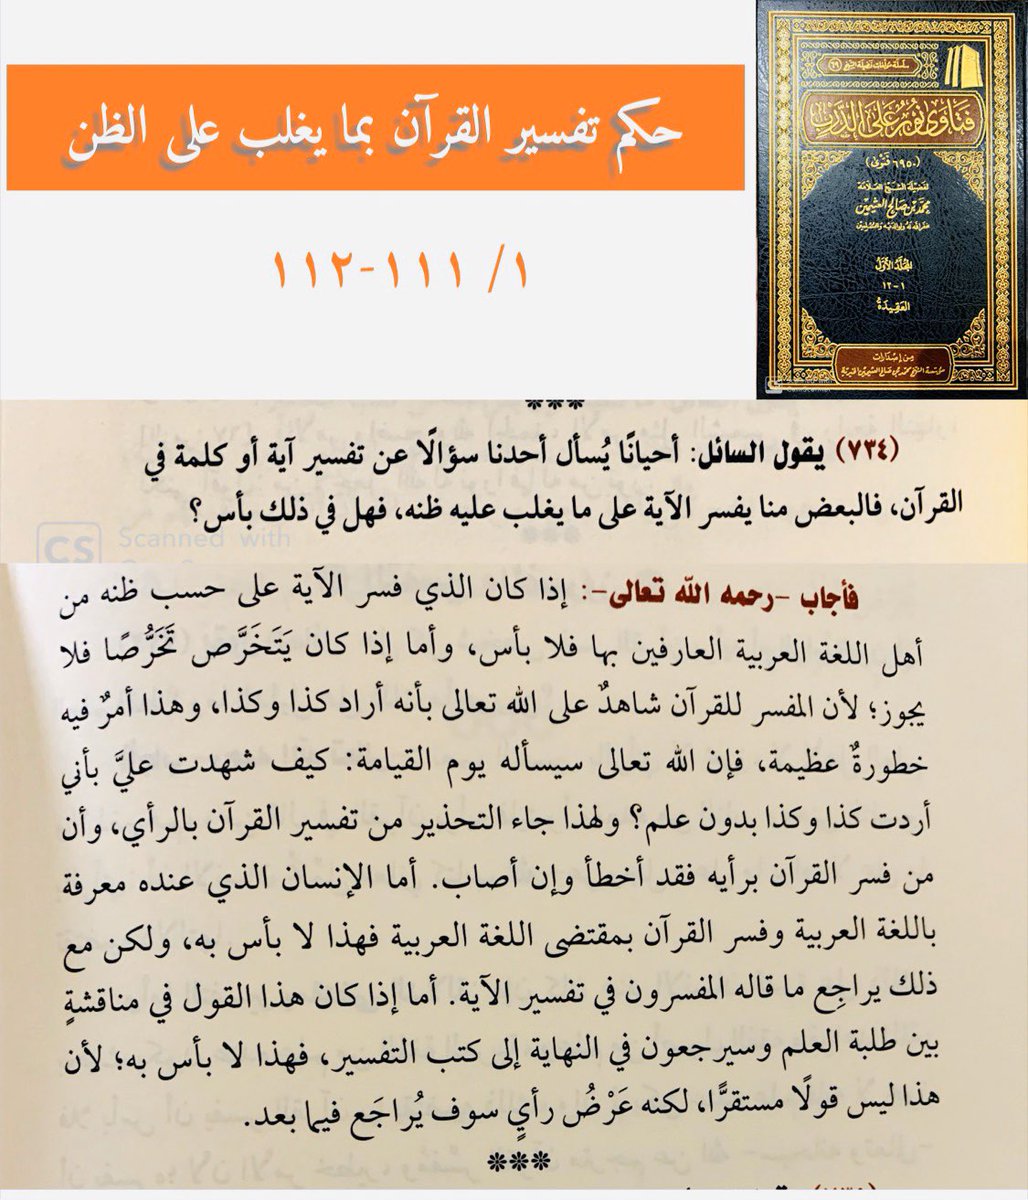 حكم تفسير القرآن بما يغلب على الظن
١/ ١١١-١١٢
سلسلة مؤلفات فضيلة الشيخ (٦٩)
فتاوى نور على الدرب
(٦٩٥٠ فتوى)
لفضيلة الشيخ العلامة
محمد بن صالح العثيمين
غفر الله له ولوالديه وللمسلمين
المجلد الأول
١-١٢
العقيدة
من إصدارات
مؤسسة الشيخ محمد بن صالح العثيمين الخيرية
***
(٧٣٤) يقول السائل: أحيانًا يُسأل أحدنا سؤالًا عن تفسير آية أو كلمة في
القرآن، فالبعض منا يفسر الآية على ما يغلب عليه ظنه، فهل في ذلك بأس؟
CS Scanned with
فأجاب -رحمه الله تعالى-: إذا كان الذي فسر الآية على حسب ظنه من
أهل اللغة العربية العارفين بها فلا بأس، وأما إذا كان يَتَخَرَّص تَخَرُّصًا فلا
يجوز؛ لأن المفسر للقرآن شاهدٌ على الله تعالى بأنه أراد كذا وكذا، وهذا أمرٌ فيه
خطورةٌ عظيمة، فإن الله تعالى سيسأله يوم القيامة: كيف شهدت عليَّ بأني
أردت كذا وكذا بدون علم؟ ولهذا جاء التحذير من تفسير القرآن بالرأي، وأن
من فسر القرآن برأيه فقد أخطأ وإن أصاب. أما الإنسان الذي عنده معرفة
باللغة العربية وفسر القرآن بمقتضى اللغة العربية فهذا لا بأس به، ولكن مع
ذلك يراجِع ما قاله المفسرون في تفسير الآية. أما إذا كان هذا القول في مناقشةٍ
بين طلبة العلم وسيرجعون في النهاية إلى كتب التفسير، فهذا لا بأس به؛ لأن
هذا ليس قولًا مستقرًّا، لكنه عَرْضُ رأيٍ سوف يُراجَع فيما بعد.
***